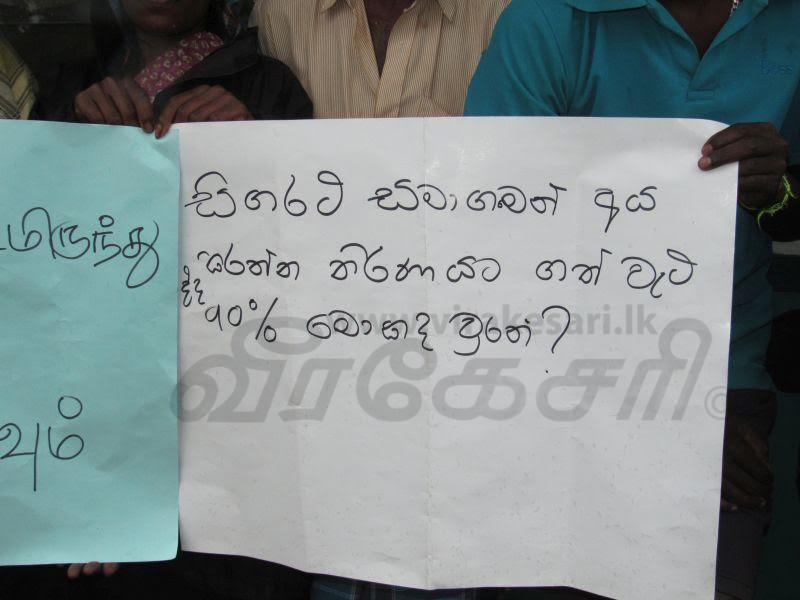 மிருந்து
வும்
සිගරට් සමාගමෙන් අය
කරන්න තීරණයට ගත් වැට්
90% මොකද වුනේ?
www.virakesari.lk
வீரகேசரி
Boss